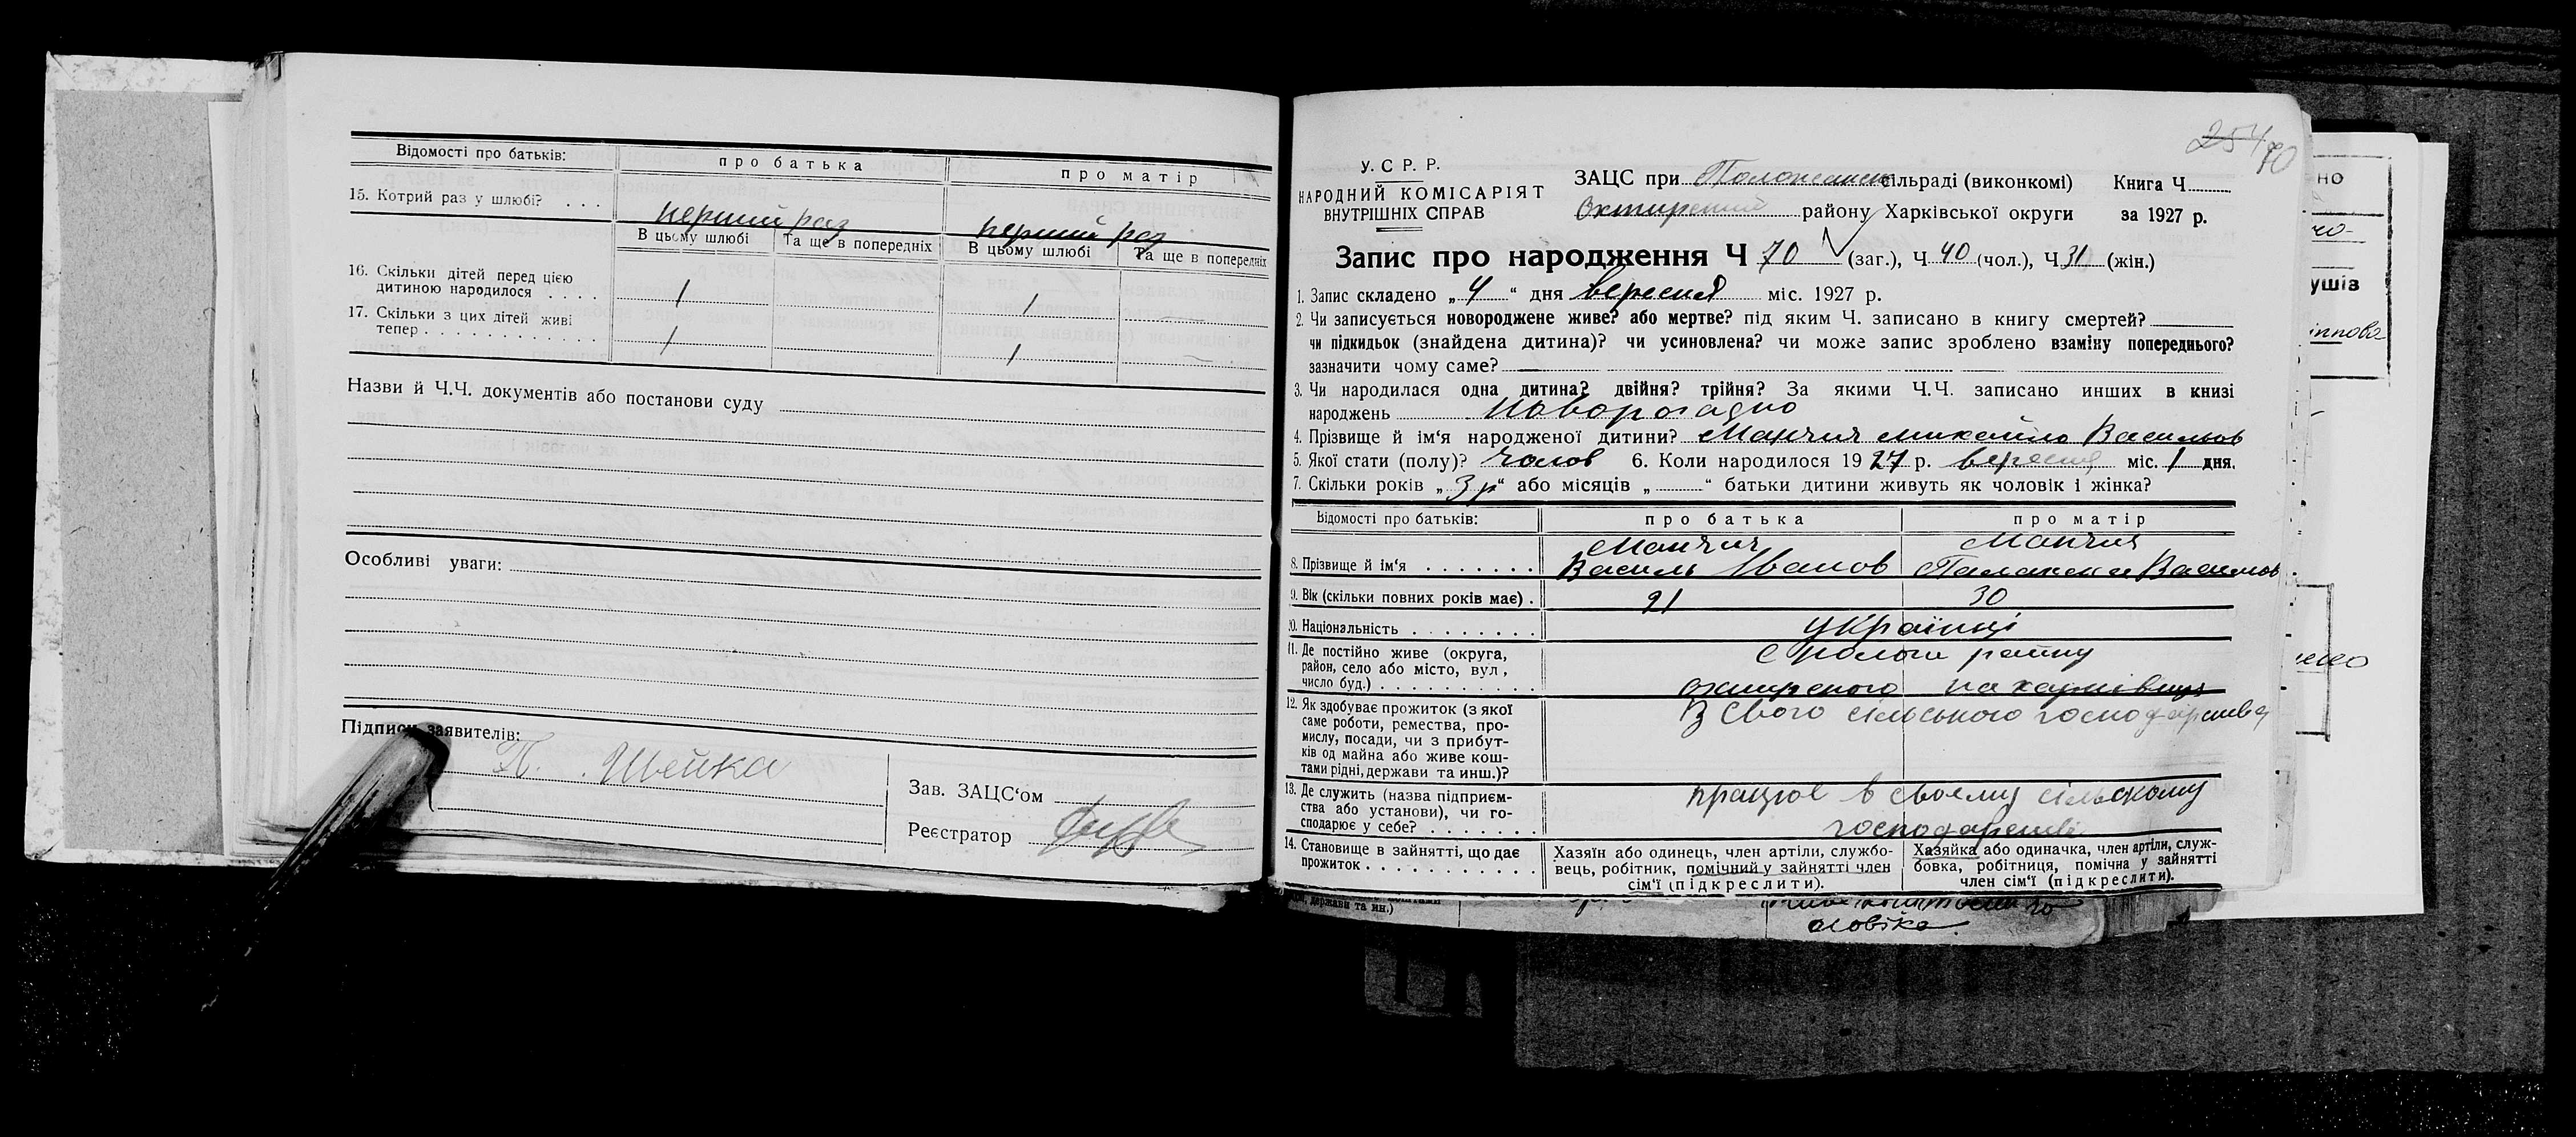 Відомості про батьків: про батька про матір
15. Котрий раз у шлюбі? . . . перший раз перший раз
В цьому шлюбі Та ще в попередніх В цьому шлюбі Та ще в попередніх
16. Скільки дітей перед цією
дитиною народилося . . . . 1 1 —
17. Скільки з цих дітей живі
тепер . . . . . . . . . . . 1 1 —
Назви й Ч.Ч. документів або постанови суду
Особливі уваги:
Підписи заявителів:
П. Шейка
Зав. ЗАЦС‘ом
Реєстратор
254 70
У.С.Р.Р.
НАРОДНИЙ КОМІСАРІЯТ
ВНУТРІШНІХ СПРАВ
ЗАЦС при сільраді (виконкомі) Книга Ч
Охтирский району Харківської округи за 1927 р.
Запис про народження Ч 70 (заг.), Ч 40 (чол.), Ч 31 (жін.)
1. Запис складено „4“ дня вересня міс. 1927 р.
2. Чи записується новороджене живе? або мертве? під яким Ч. записано в книгу смертей?
чи підкидьок (знайдена дитина)? чи усиновлена? чи може запис зроблено взаміну попереднього?
зазначити чому саме?
3. Чи народилася одна дитина? двійня? трійня? За якими Ч.Ч. записано инших в книзі
народжень
4. Прізвище й ім‘я народженої дитини? Манчич Михайло Васильов
5. Якої стати (полу)? Чолов 6. Коли народилося 1927 р. вересня міс. 1 дня.
7. Скільки років „3 р“ або місяців „ “ батьки дитини живуть як чоловік і жінка?
Відомості про батьків: про батька про матір
Манчич Манчич
8. Прізвище й ім‘я . . . . . . . Василь Иванов
9. Вік (скільки повних років має) . 21 30
10. Національність . . . . . . . . українці
11. Де постійно живе (округа,
район, село або місто, вул,
число буд.) . . . . . . . . . . . охтирского на харківщу
12. Як здобуває прожиток (з якої З Свого сільського господарства
саме роботи, ремества, про-
мислу, посади, чи з прибут-
ків од майна або живе кош-
тами рідні, держави та инш.)?
13. Де служить (назва підприєм- працює в своєму сільскому
ства або установи), чи го-
сподарює у себе? . . . . . . . господарстві
14. Становище в зайнятті, що дає
прожиток . . . . . . . . . . . .
Хазяїн або одинець, член артіли, службо-
вець, робітник, помічний у зайнятті член
сім‘ї (підкреслити).
Хазяйка або одиначка, член артіли, служ-
бовка, робітниця, помічна у зайнятті
член сім‘ї (підкреслити).
держави та ин.)